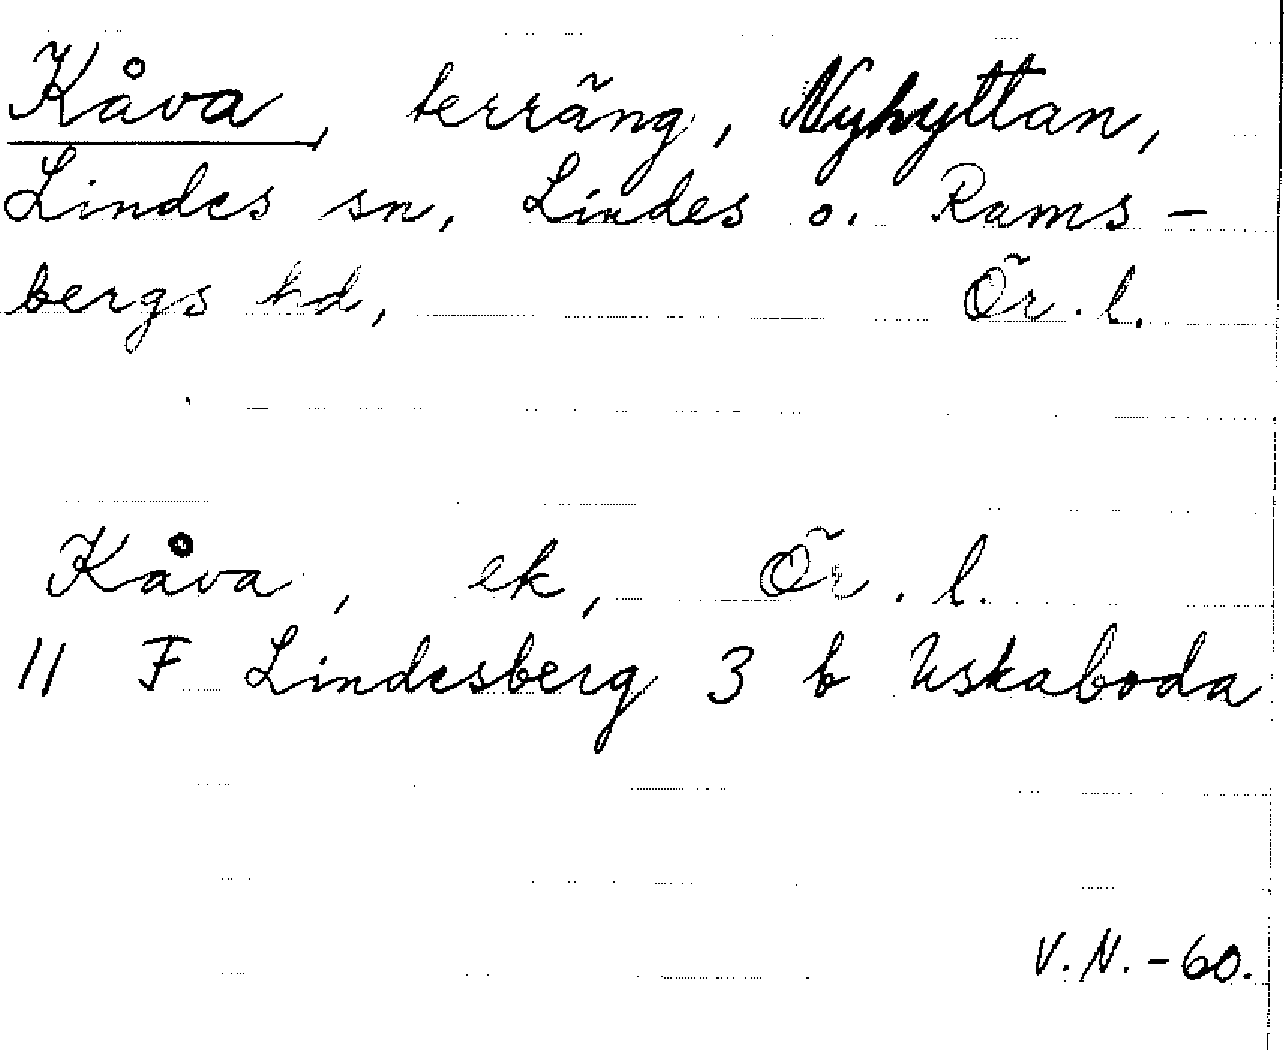 Kåva, terräng, Nyhyttan,
Lindes sn, Lindes o. Rams-
bergs hd, Ör. l.
Kåva, ek, Ör. l.
11 F Lindesberg 3 b Uskaboda
V.N. -60.